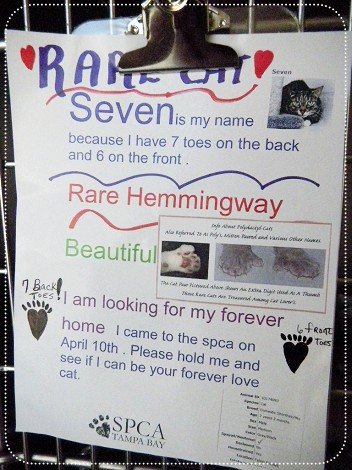 RARE CAT
Seven
Seven is my name
because I have 7 toes on the back
and 6 on the front .
Rare Hemmingway
Beautiful
Info About Polydactyl Cats
Also Referred To As Poly's, Mitten Pawed and Various Other Names.
The Cat Paw Pictured Above Shows An Extra Digit Used As A Thumb
These Rare Cats Are Treasured Among Cat Lover's.
7 Back
TOES!
I am looking for my forever
home I came to the spca on
April 10th . Please hold me and
see if I can be your forever love
cat.
6 FRONT
TOES
SPCA
TAMPA BAY
Animal ID:
Species: Cat
Breed: Domestic Shorthair
Age:
Sex: Male
Size: Medium
Color: Gray/Black
Spayed/Neutered:
Declawed:
Housetrained:
Location: